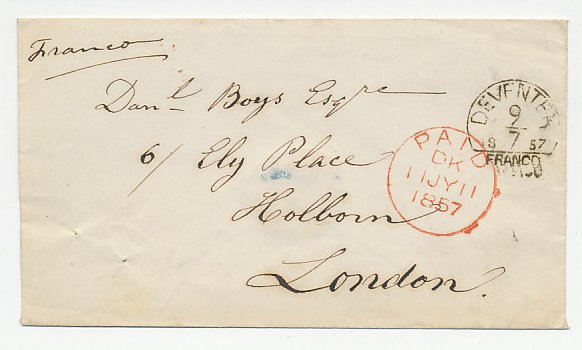 Franco
Danl Boys Esqre
6/ Ely Place
Holborn
London.
DEVENTER
9
7
8 57
FRANCO
PAID
DK
11JY11
1857